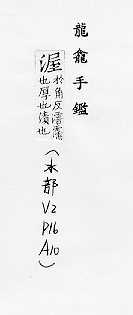 龍龕手鑑
渥
於角反霑濡
也厚也漬也
(水部
V2
P16
A10)